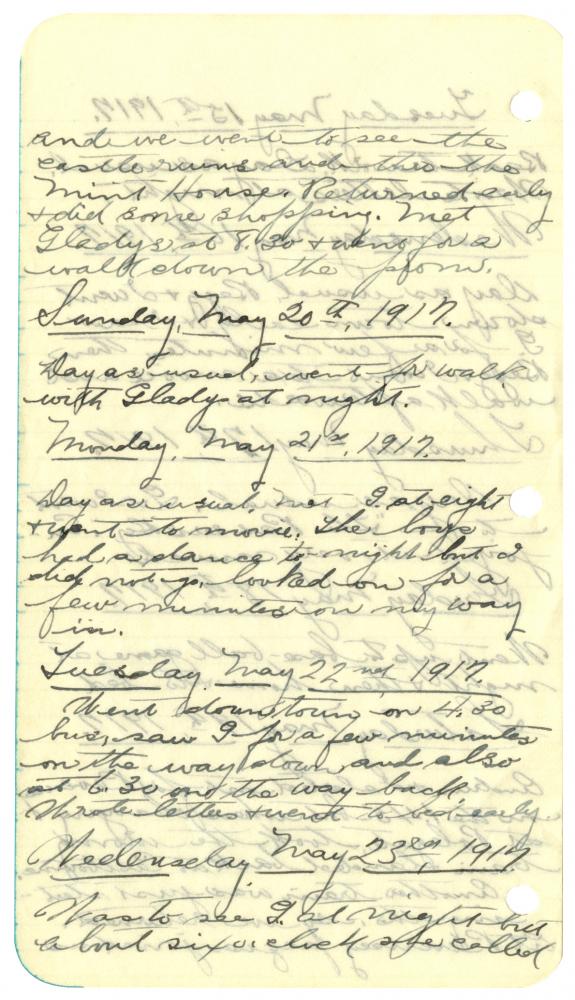 and we went to see the
castle ruins and then the
Mint House. Returned early
& did some shopping. Met
Gladys at 8.30 & went for a
walk down the prom.
Sunday, May 20th, 1917.
Day as usual, went for walk
with Gladys at night.
Monday, May 21st, 1917.
Day as usual, met G. at eight
& went to movie. The boys
had a dance to night but I
did not go, looked on for a
few minutes on my way
in.
Tuesday May 22nd, 1917.
Went downtown on 4.30
bus, saw G for a few minutes
on the way down and also
at 6.30 on the way back.
Wrote letters & went to bed early.
Wedensday May 23rd, 1917
Was to see G. at night but
about six o'clock she called